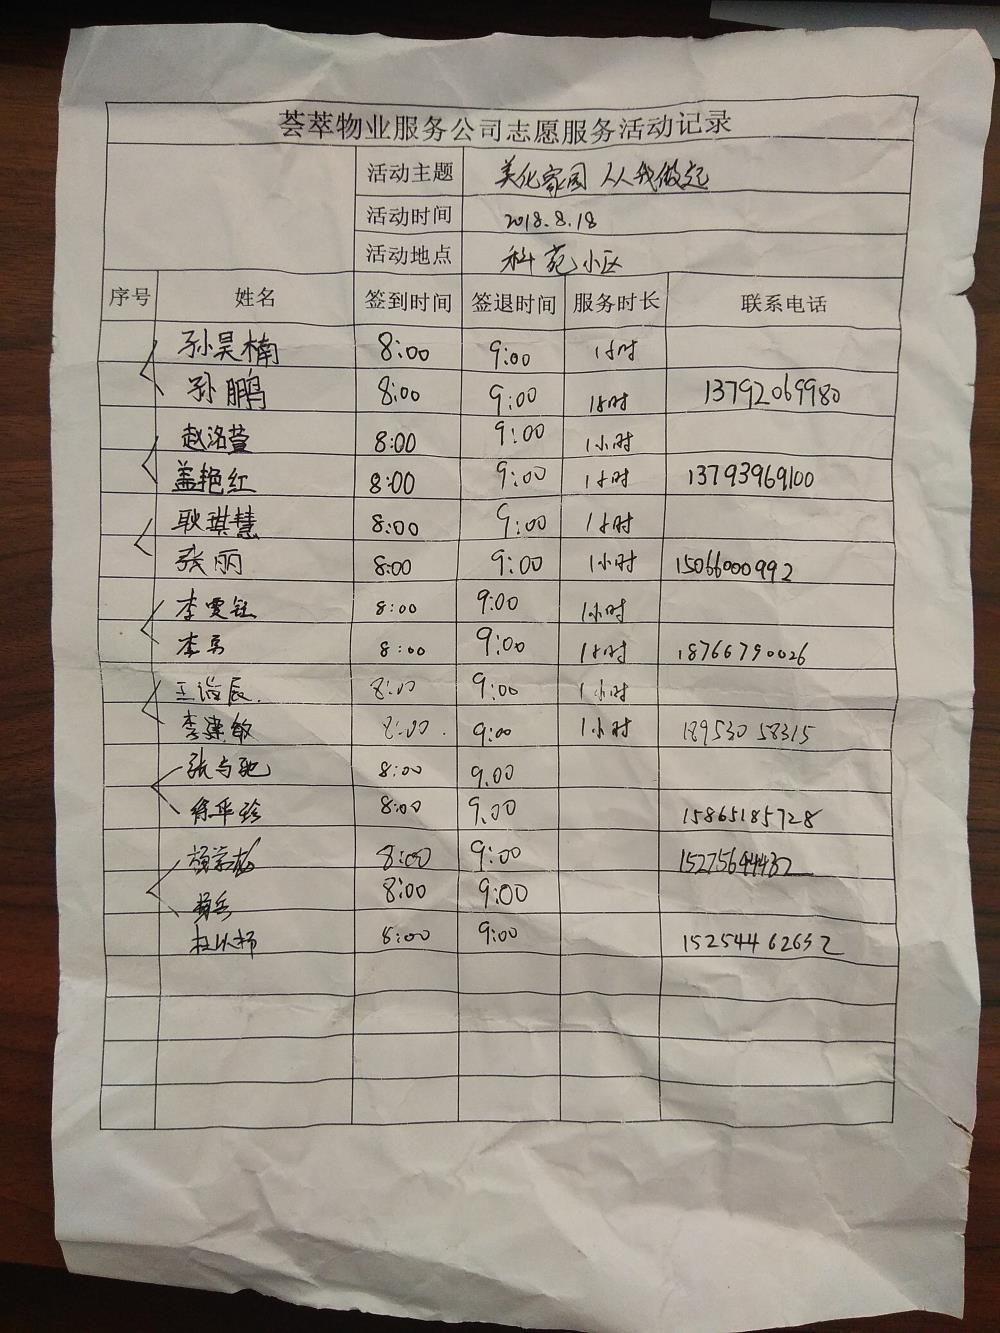 荟萃物业服务公司志愿服务活动记录
活动主题 美化家园 人人我做起
活动时间 2018.8.18
活动地点 科苑小区
序号 姓名 签到时间 签退时间 服务时长 联系电话
孙昊楠 8:00 9:00 1小时
孙鹏 8:00 9:00 1小时 13792069980
赵洺萱 8:00 9:00 1小时
盖艳红 8:00 9:00 1小时 13793969100
耿琪慧 8:00 9:00 1小时
张丽 8:00 9:00 1小时 15066000992
李雯钰 8:00 9:00 1小时
李勇 8:00 9:00 1小时 18766790026
王谊辰. 8:00 9:00 1小时
李建敏 8:00. 9:00 1小时 18953058315
张与驰 8:00 9.00
徐平珍 8:00 9.00 15865185728
8:00 9:00 15275644432
8:00 9:00
杜以杨 8:00 9:00 15254462652